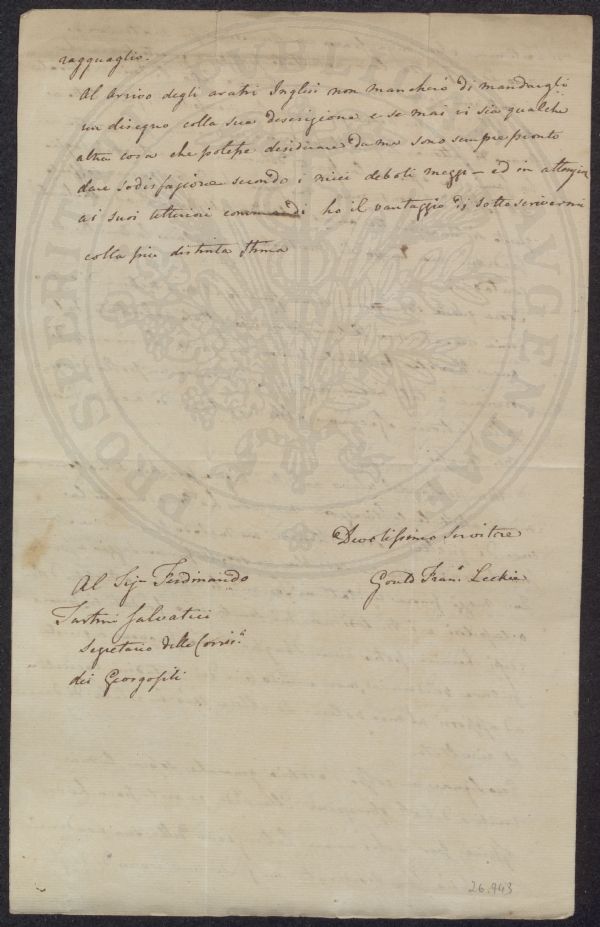 ragguaglio.
Al arrivo degli aratri Inglesi non mancherò di mandargli
un disegno colla sua descrizione e se mai vi sia qualche
altra cosa che potesse desiderare da me sono sempre pronto
dare sodisfazione secondo i miei deboli mezzi – ed in
ai suoi ulteriori commandi ho il vantaggio di sottoscrivermi
colla piu distinta stima
Devotissimo Servitore
Gould Fran.o Leckie
Al Sig.r Ferdinando
Tartini Salvatici
Segretario delle Corris.e
dei Georgofili
26.943
PROSPERITATI
AUGENDAE